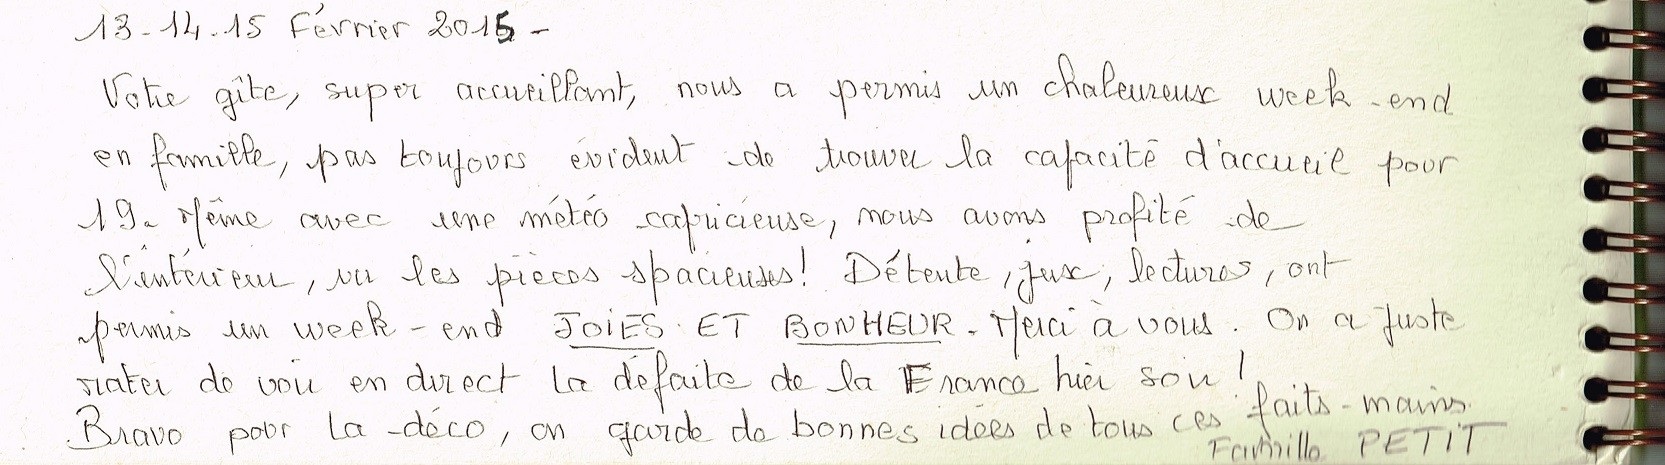 13-14-15 Février 2015-
Votre gîte, super accueillant, nous a permis un chaleureux week-end
en famille, pas toujours évident de trouver la capacité d'accueil pour
19. Même avec une météo capricieuse, nous avons profité de
l'intérieur, vu les pièces spacieuses! Détente, jeux, lectures, ont
permis un week-end JOIES ET BONHEUR. Merci à vous. On a juste
rater de voir en direct la défaite de la France hier soir!
Bravo pour la déco, on garde de bonnes idées de tous ces faits-mains.
Famille PETIT